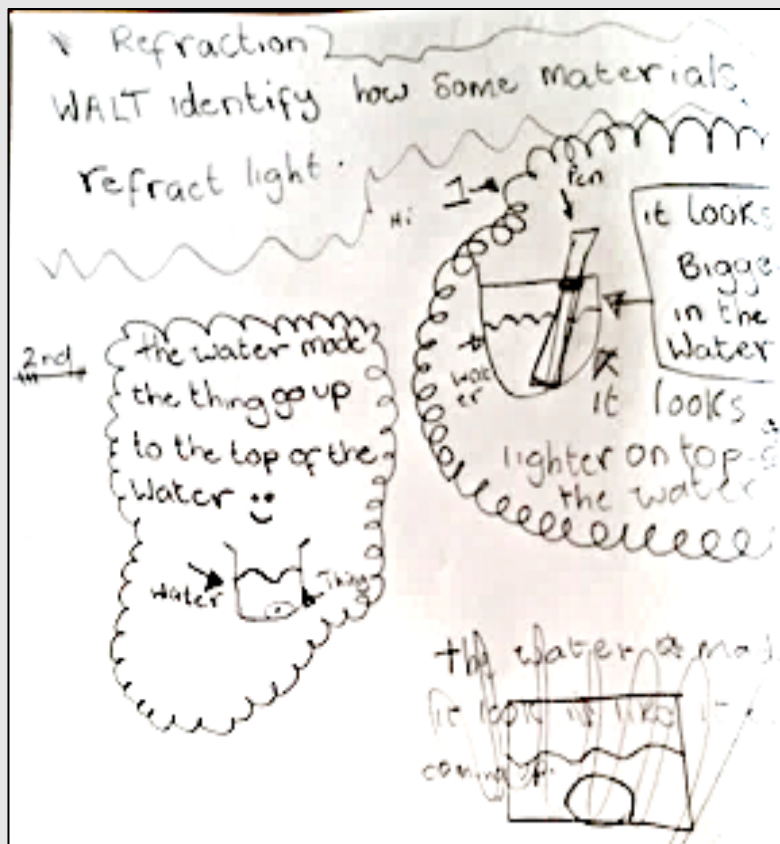 Refraction
WALT identify how some materials
refract light.
Hi
1
Pen
it looks
Bigge
in the
Water
wat
er
it looks
lighter on top
the water
2nd
the water made
the thing go up
to the top of the
Water
Water
Thing
the water ma
it look like it
coming up.